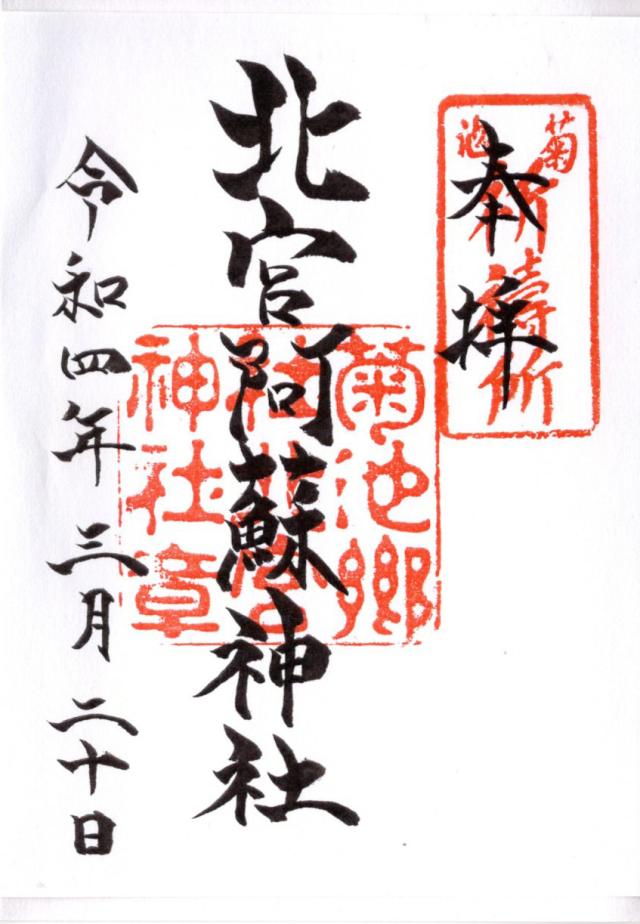 菊池
祈禱所
奉拝
北宮阿蘇神社
菊池郷
神社章
令和四年三月二十日